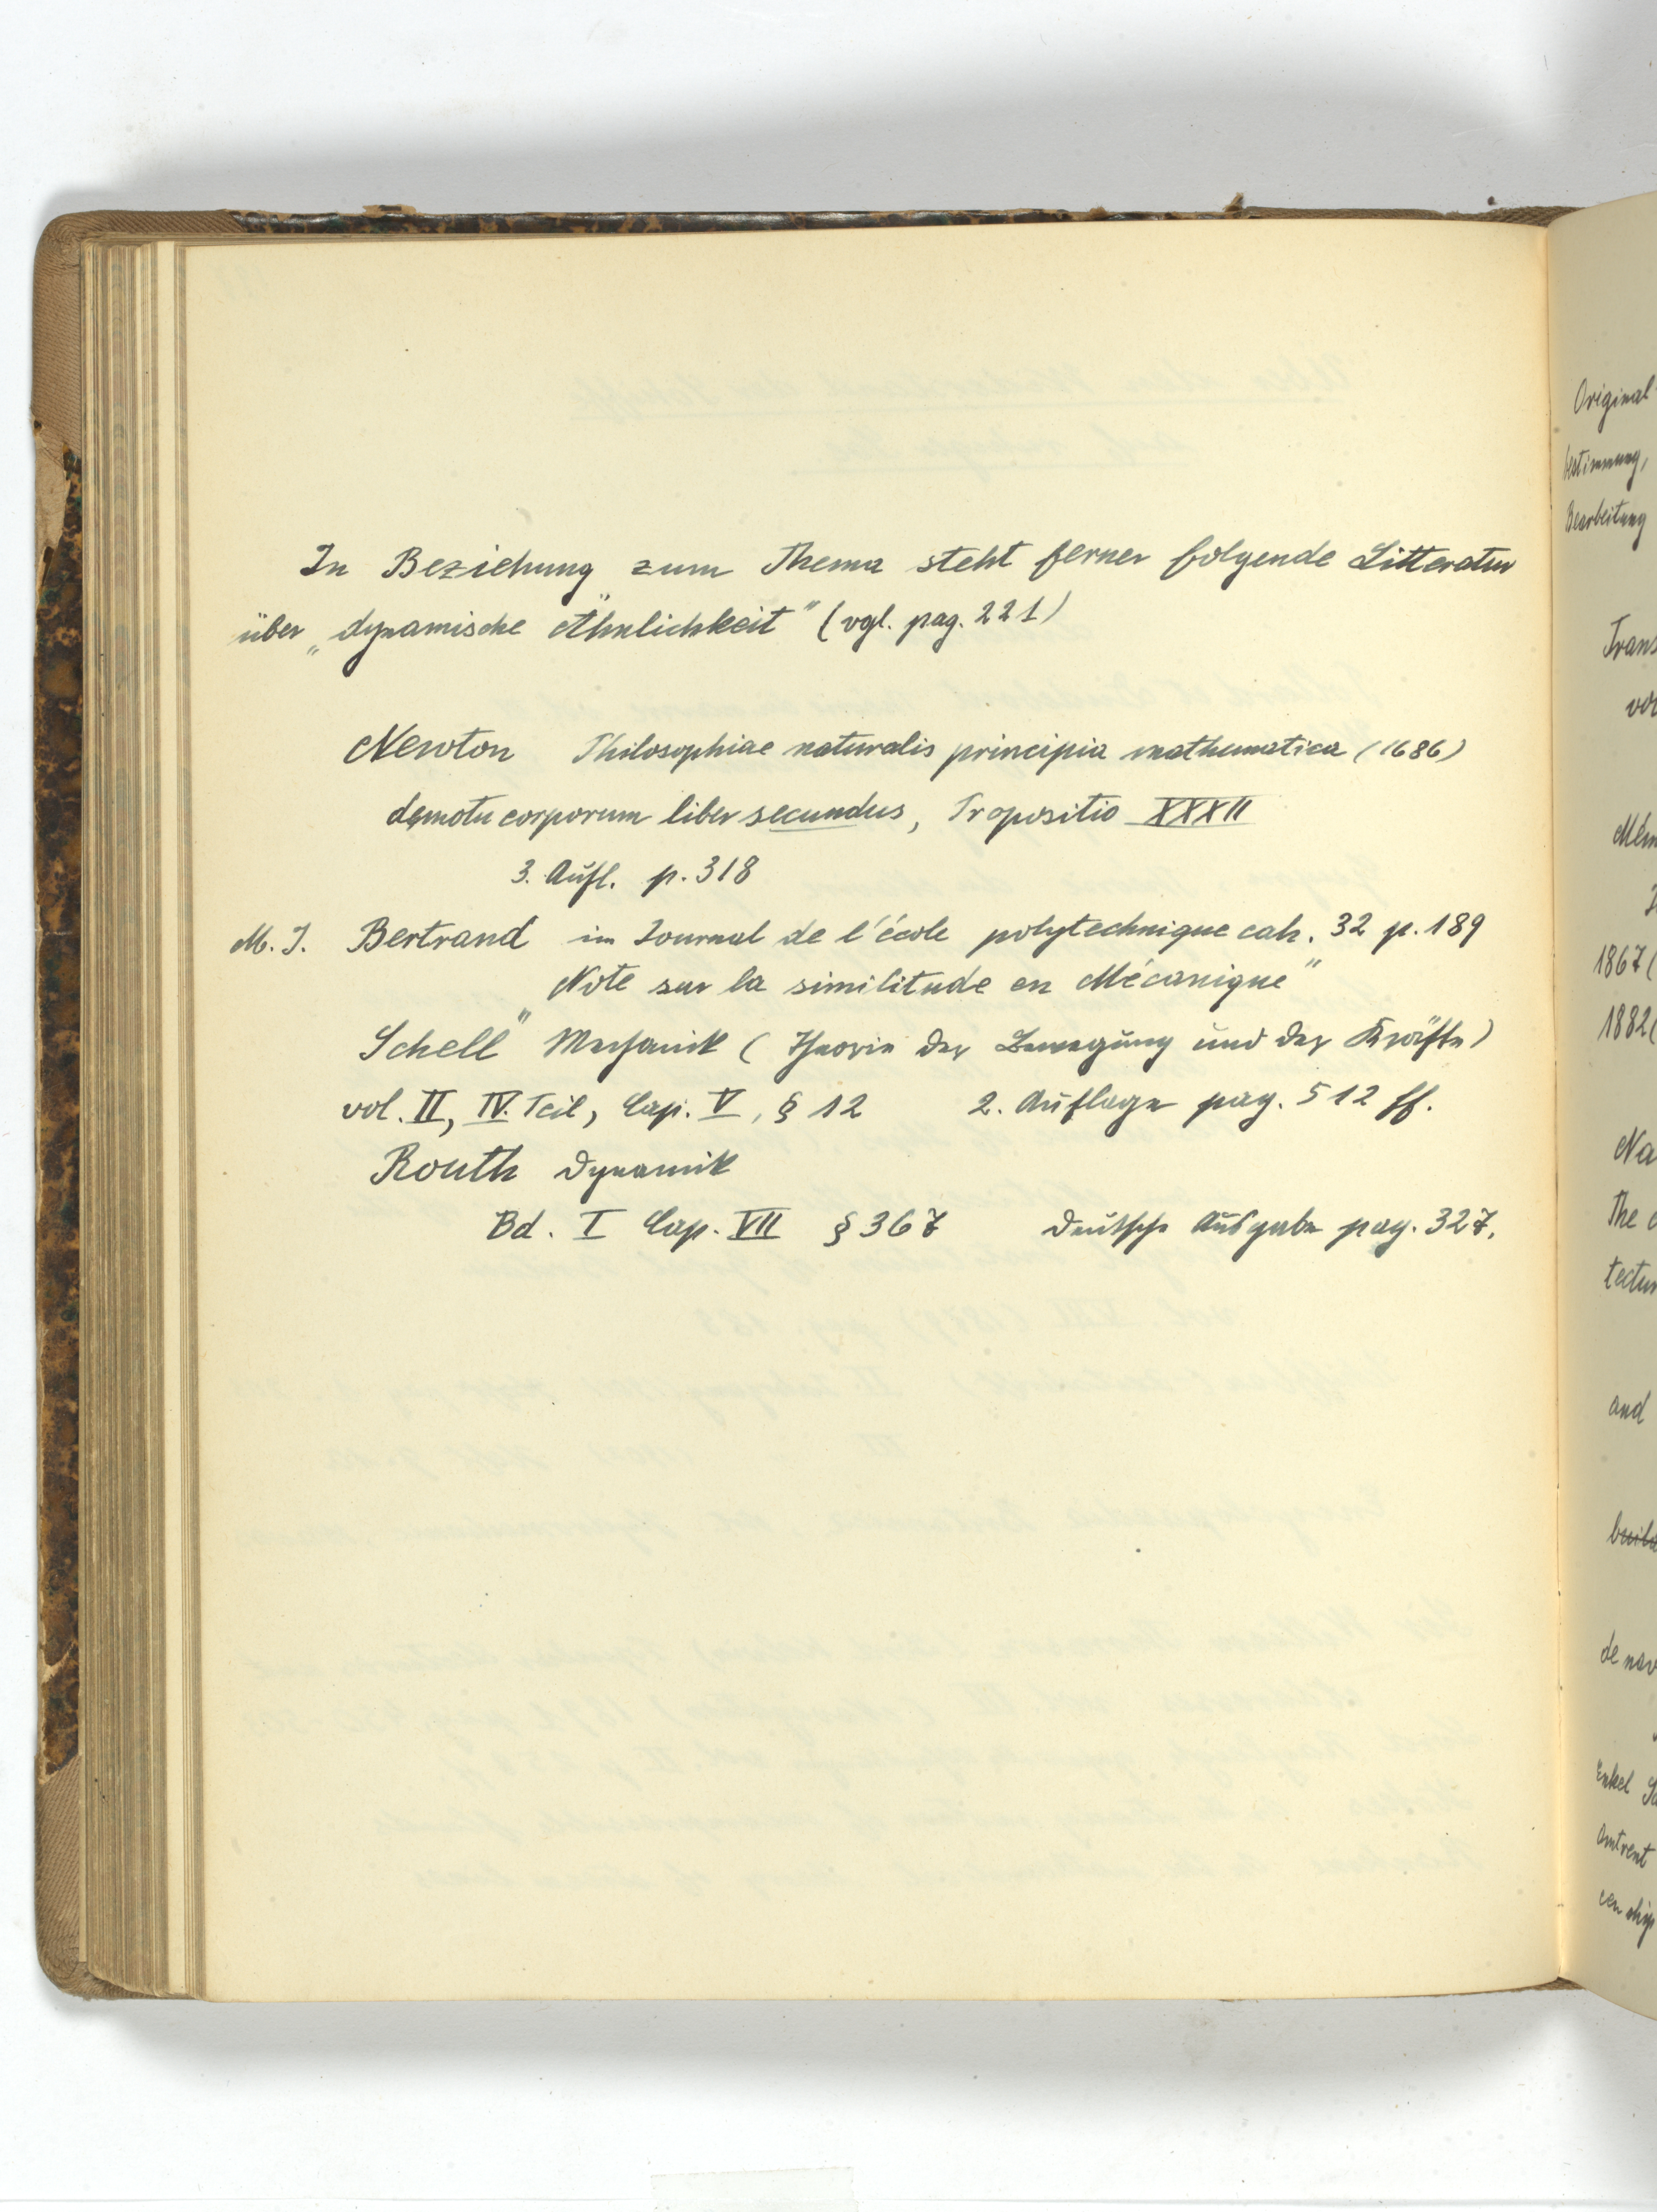 In Beziehung zum Thema steht ferner folgende Litteratur
über „dynamische Ähnlichkeit" (vgl. pag. 221)
Newton Philosophiae naturalis principia mathematica (1686)
de motu corporum liber secundus, Propositio XXXII
3. Aufl. p. 318
M. J. Bertrand im Journal de l'école polytechnique cah. 32 p. 189
„Note sur la similitude en Mécanique"
Schell Mechanik (Theorie der Bewegung und der Kräfte)
vol. II, IV. Teil, Cap. V, § 12 2. Auflage pag. 512 ff.
Routh Dynamik
Bd. I Cap. VII § 367 Deutsche Ausgabe pag. 327.
Original
bestimmung,
Bearbeitung
Trans
vor
Mém
1867 (
1882 (
Na
The
tectur
and
de nav
Enkel
Omtrent